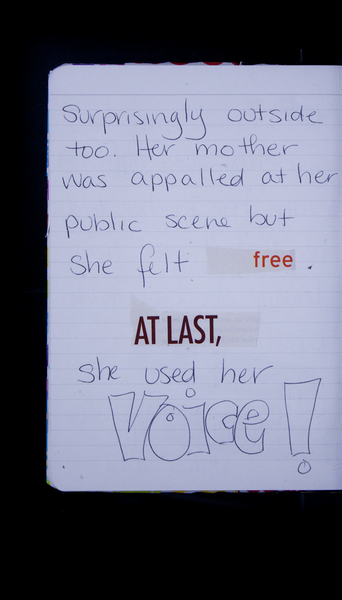 Surprisingly outside
too. Her mother
was appalled at her
public scene but
she felt free.
AT LAST,
she used her
Voice!